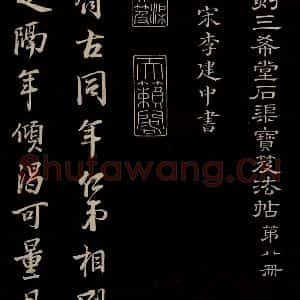 御刻三希堂石渠寶笈法帖第八冊
宋李建中書
天籟閣
有古同年仁弟相別
隔年傾渴可量
Shufawang.Cn